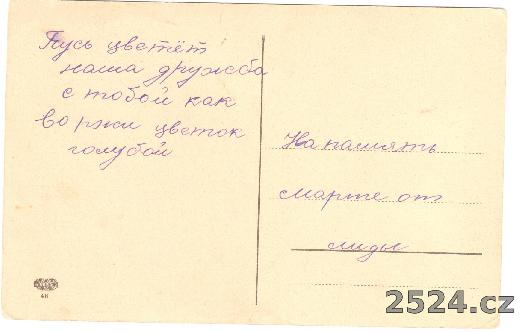 Пусь цветёт
наша дружба
с тобой как
во ржи цветок
голубой
На память
Марте от
лиды
48
2524.cz